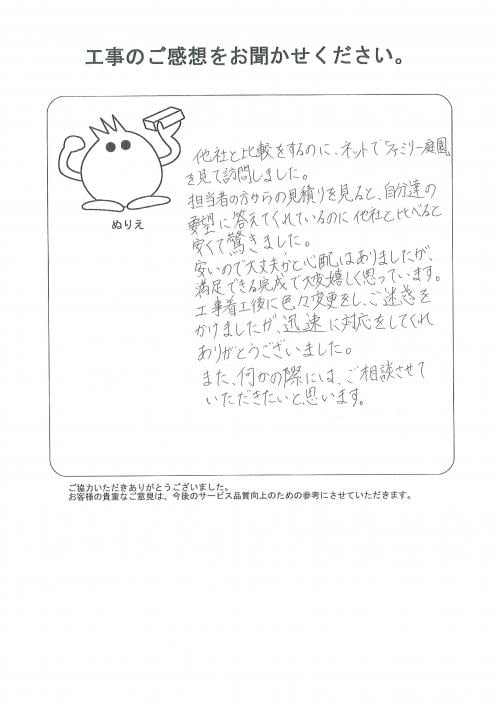 工事のご感想をお聞かせください。
ぬりえ
他社と比較をするのに、ネットでファミリー庭園
を見て訪問しました。
担当者の方からの見積りを見ると、自分達の
要望に答えてくれているのに他社と比べると
安くて驚きました。
安いので大丈夫かと心配はありましたが、
満足できる完成で大変嬉しく思っています。
工事着工後に色々変更をし、ご迷惑を
かけましたが、迅速に対応をしてくれ
ありがとうございました。
また、何かの際には、ご相談させて
いただきたいと思います。
ご協力いただきありがとうございました。
お客様の貴重なご意見は、今後のサービス品質向上のための参考にさせていただきます。